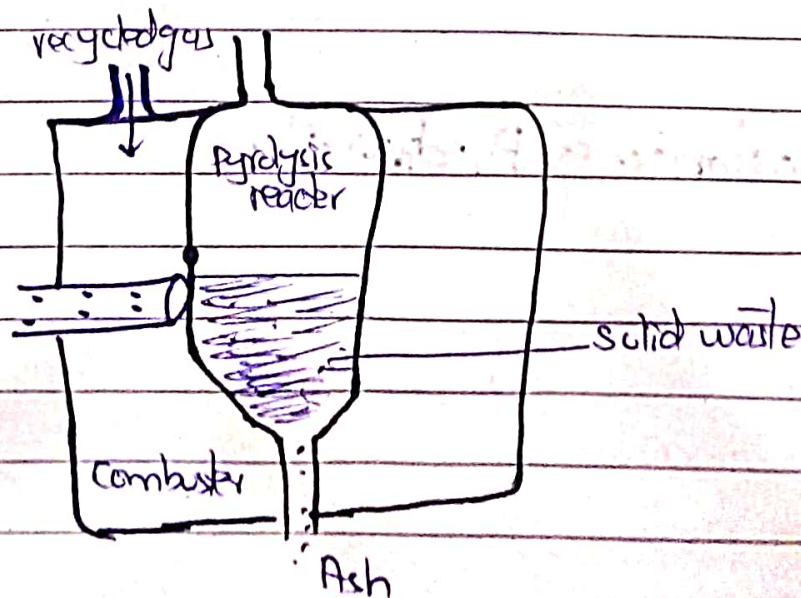 recycledgas
Pyrolysis
reacter
Solid waste
Combuster
Ash